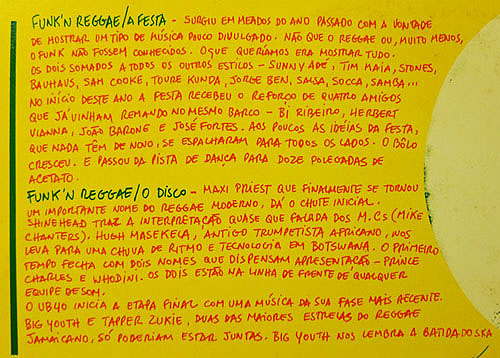 FUNK'N REGGAE/A FESTA - SURGIU EM MEADOS DO ANO PASSADO COM A VONTADE
DE MOSTRAR UM TIPO DE MÚSICA POUCO DIVULGADO. NÃO QUE O REGGAE OU, MUITO MENOS,
O FUNK NÃO FOSSEM CONHECIDOS. O QUE QUERÍAMOS ERA MOSTRAR TUDO.
OS DOIS SOMADOS A TODOS OS OUTROS ESTILOS - SUNNY ADÉ, TIM MAIA, STONES,
BAUHAUS, SAM COOKE, TOURE KUNDA, JORGE BEN, SALSA, SOCCA, SAMBA...
NO INÍCIO DESTE ANO A FESTA RECEBEU O REFORÇO DE QUATRO AMIGOS
QUE JÁ VINHAM REMANDO NO MESMO BARCO - BI RIBEIRO, HERBERT
VIANNA, JOÃO BARONE E JOSÉ FORTES. AOS POUCOS AS IDÉIAS DA FESTA,
QUE NADA TÊM DE NOVO, SE ESPALHARAM PARA TODOS OS LADOS. O BÔLO
CRESCEU. E PASSOU DA PISTA DE DANÇA PARA DOZE POLEGADAS DE
ACETATO.
FUNK'N REGGAE/O DISCO - MAXI PRIEST QUE FINALMENTE SE TORNOU
UM IMPORTANTE NOME DO REGGAE MODERNO, DÁ O CHUTE INICIAL.
SHINEHEAD TRAZ A INTERPRETAÇÃO QUASE QUE FALADA DOS M.Cs (MIKE
CHANTERS). HUGH MASEKELA, ANTIGO TRUMPETISTA AFRICANO, NOS
LEVA PARA UMA CHUVA DE RITMO E TECNOLOGIA EM BOTSWANA. O PRIMEIRO
TEMPO FECHA COM DOIS NOMES QUE DISPENSAM APRESENTAÇÃO - PRINCE
CHARLES E WHODINI. OS DOIS ESTÃO NA LINHA DE FRENTE DE QUALQUER
EQUIPE DE SOM.
O UB40 INICIA A ETAPA FINAL COM UMA MÚSICA DA SUA FASE MAIS RECENTE.
BIG YOUTH E TAPPER ZUKIE, DUAS DAS MAIORES ESTRELAS DO REGGAE
JAMAICANO, SÓ PODERIAM ESTAR JUNTAS. BIG YOUTH NOS LEMBRA A BATIDA DO SKA